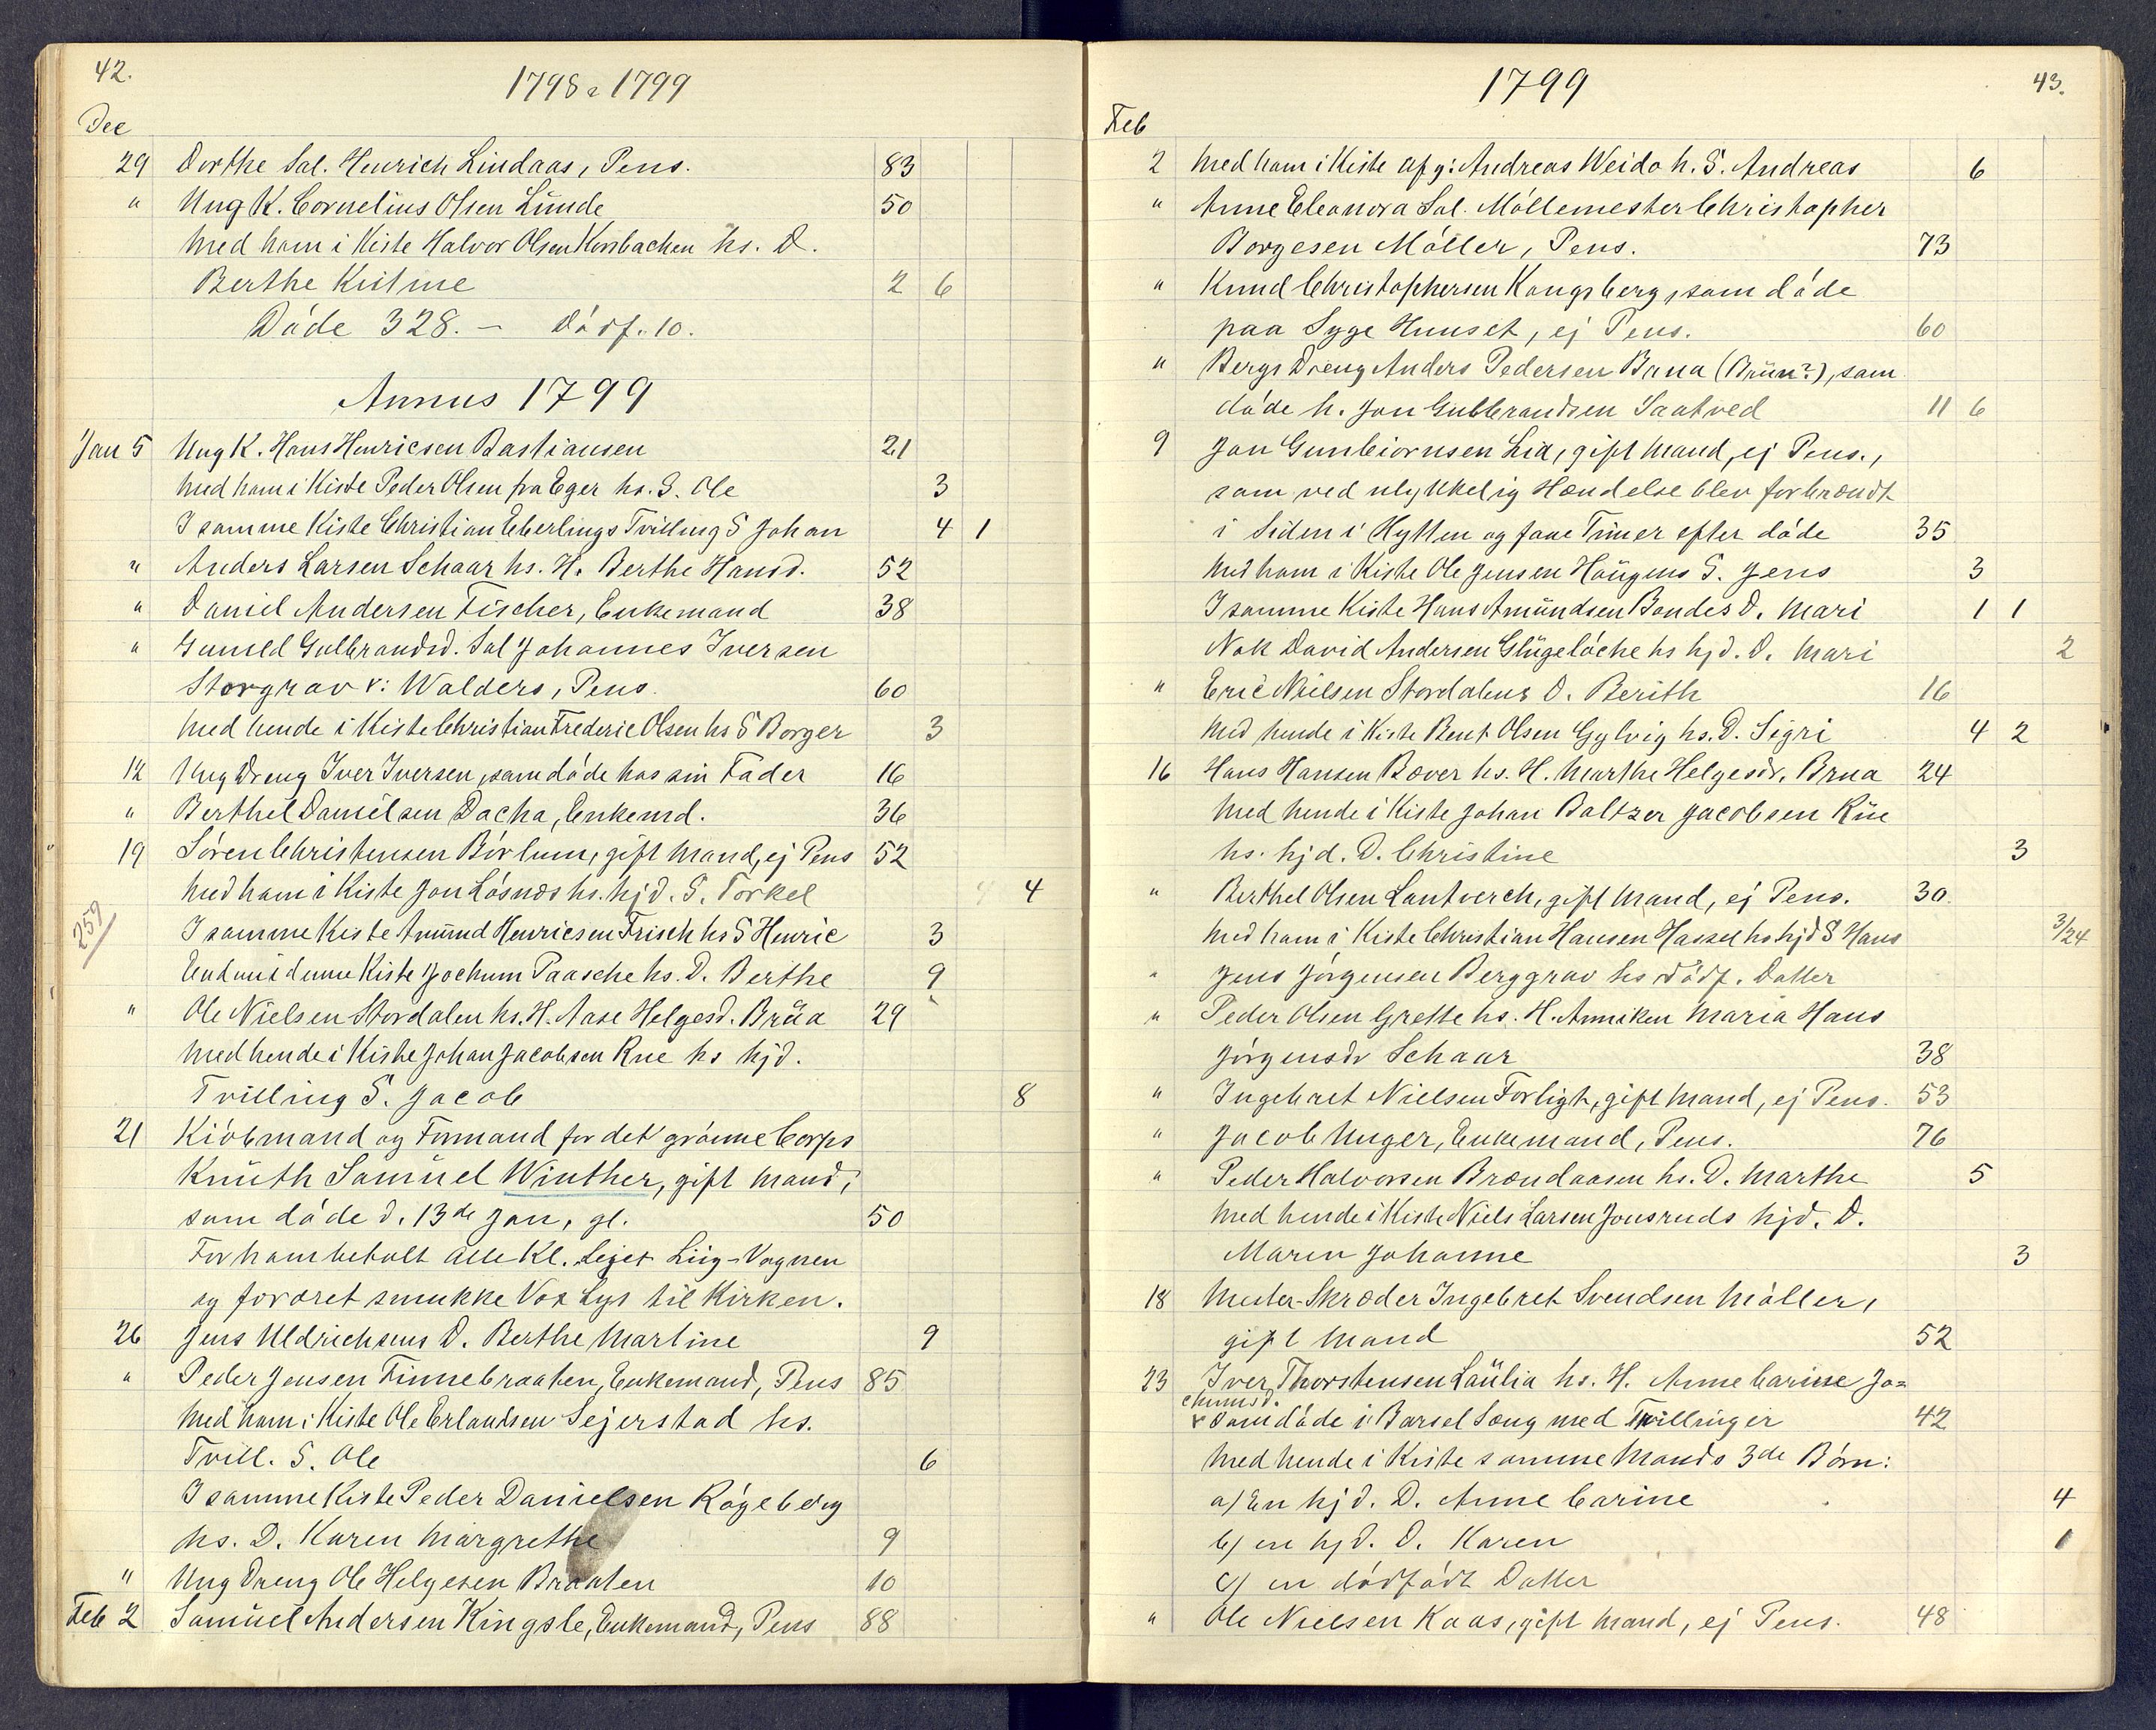 42.
1798 & 1799
Dec
29 Dorthe Sal. Henrich Lindaas, Pens. 83
" Ung K. Cornelius Olsen Lunde 50
Med ham i Kiste Halvor Olsen Korsbachen hs. D.
Berthe Kistine 2 6
Døde 328. – Dødf. 10.
Annus 1799
Jan 5 Ung K. Hans Henricsen Bastiansen 21
Med ham i Kiste Peder Olsen fra Eger hs. S. Ole 3
I samme Kiste Christian Eberlings Tvilling S Johan 4 1
" Anders Larsen Schaar hs. H. Berthe Hansd. 52
" Daniel Andersen Fischer, Enkemand 38
" Gunild Gulbrandsd. Sal Johannes Iversen
Storgrav v: Walders, Pens. 60
Med hende i Kiste Christian Frederic Olsen hs S Borger 3
12 Ung Dreng Iver Iversen, som døde hos sin Fader 16
" Berthel Danielsen Dacha, Enkemd. 36
19 Søren Christensen Børlum, gift Mand, ej Pens 52
Med ham i Kiste Jon Løsnæs hs. hjd. S. Torkel 4
259
I samme Kiste Amund Henricsen Frisch hs S Henric 3
End mid denne Kiste Jochum Paasche hs. D. Berthe 9
" Ole Nielsen Stordalen hs. H. Aase Helgesd. Brüa 29
Med hende i Kiste Johan Jacobsen Rue hs hjd.
Tvilling S. Jacob 8
21 Kiøbmand og Formand for det grønne Corps
Knuth Samuel Winther, gift Mand,
som døde d. 13de Jan, gl. 50
For ham betalt alle Kl. Lejet Liig-Vognen
og foræret smukke Vox Lys til Kirken.
26 Jens Uldrichsens D. Berthe Martine 9
" Peder Jensen Finnebraaten, Enkemand, Pens 85
Med ham i Kiste Ole Erlandsen Sejerstad hs.
Tvill. S. Ole 6
I samme Kiste Peder Danielsen Røgeberg
hs. D. Karen Margrethe 9
" Ung Dreng Ole Helgesen Braaten 10
Feb 2 Samuel Andersen Kingsle, Enkemand, Pens 88
1799
43.
Feb
2 Med ham i Kiste afg: Andreas Weido h. S. Andreas 6
" Anne Eleonora Sal. Møllemester Christopher
Borgesen Møller, Pens. 73
" Knud Christophersen Kongsberg, som døde
paa Syge Huuset, ej Pens. 60
" Bergs Dreng Anders Pedersen Brua (Brüün?), som
døde h. Jon Gulbrandsen Saatved 11 6
9 Jon Gunbiørnsen Lia, gift Mand, ej Pens.,
som ved ulykkelig Hændelse blev forbrændt
i Siden i Hytten og faae Timer efter døde 35
Med ham i Kiste Ole Jensen Haugens S. Jens 3
I samme Kiste Hans Amundsen Bondes D. Mari 1 1
Nok David Andersen Glügeløche hs hjd. D. Mari 2
" Eric Nielsen Stordalens D. Berith 16
Med hende i Kiste Bent Olsen Gylvig hs. D. Sigri 4 2
16 Hans Hansen Bæver hs. H. Marthe Helgesdr. Brua 24
Med hende i Kiste Johan Baltzer Jacobsen Rüe
hs. hjd. D. Christine 3
" Berthel Olsen Lantverch, gift Mand, ej Pens. 30
Med ham i Kiste Christian Hansen Hassel hs hjd S Hans 3/24
" Jens Jørgensen Berggrav hs dødf. Datter
" Peder Olsen Grette hs. H. Anniken Maria Hans
Jørgensdr Schaar 38
" Ingebret Nielsen Forligt, gift Mand, ej Pens. 53
" Jacob Unger, Enkemand, Pens. 76
" Peder Halvorsen Brændaasen hs. D. Marthe 5
Med hende i Kiste Niels Larsen Jonsruds hjd. D.
Maren Johanne 3
18 Mester-Skræder Ingebret Svendsen Møller,
gift Mand 52
23 Iver Thorstensen Laulia hs. H. Anne Carine Jo=
chumsd.
som døde i Barsel Sæng med Trillinger 42
Med hende i Kiste samme Mands 3de Børn:
a) En hjd. D. Anne Carine 4
b) en hjd. D. Karen 1
c) en dødfødt Datter
" Ole Nielsen Kaas, gift Mand, ej Pens. 48